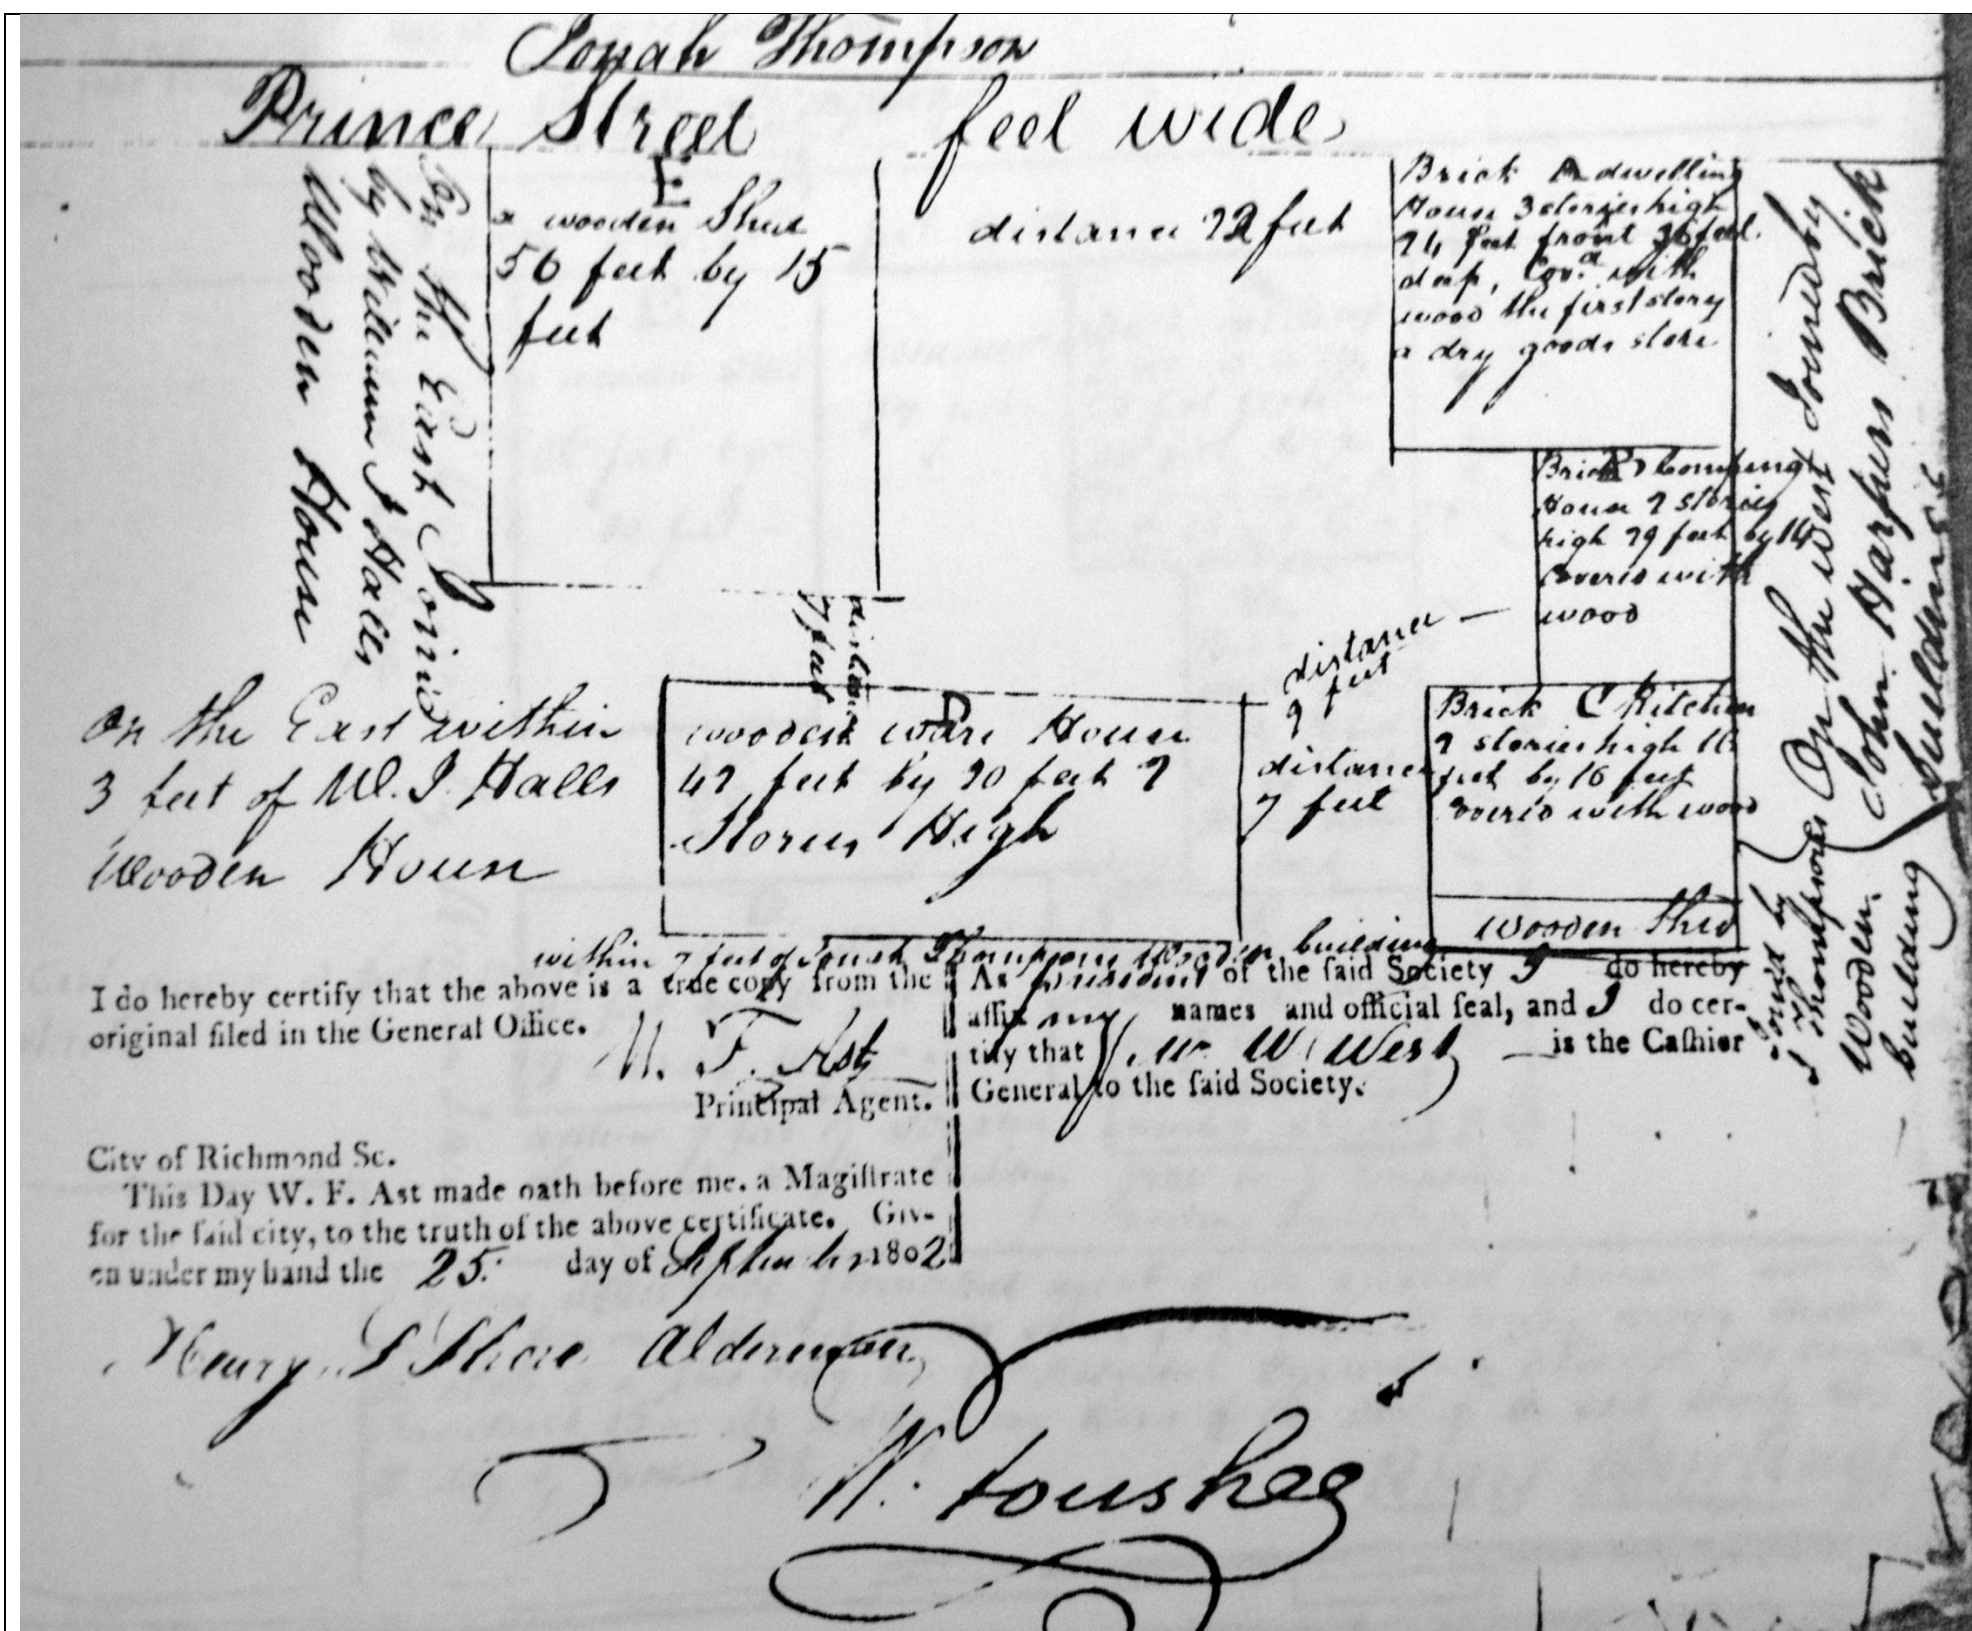 Jonah Thompson
Prince Street feet wide
E
a wooden Shed
56 feet by 15
feet
distance 22 feet
Brick A dwelling
House 3 stories high
24 feet front 36 feet
deep, Cov.d with
wood the first story
a dry goods store
On the East Joined
by William I Halls
Wooden House
Brick B Compting
House 2 stories
high 29 feet by 14
Covered with
wood
On the west Joined by
John Harpers Brick
buildings
distance
7 feet
distance
9 feet
On the East within
3 feet of W. I. Halls
Wooden House
D
wooden ware House
42 feet by 20 feet 2
Stories High
distance
7 feet
Brick C Kitchen
2 stories high 16
feet by 16 feet
Covered with wood
Wooden Shed
Joined by
J Thompsons
Wooden
building
within 7 feet of Jonah Thompsons Wooden building
I do hereby certify that the above is a true copy from the
original filed in the General Office.
W. F. Ast
Principal Agent.
As president of the said Society I do hereby
affix my names and official seal, and I do cer-
tify that W West is the Cashier
General to the said Society.
City of Richmond Sc.
This Day W. F. Ast made oath before me. a Magistrate
for the said city, to the truth of the above certificate. Giv-
en under my hand the 25. day of September 1802
Henry S Shore Alderman
W. foushee